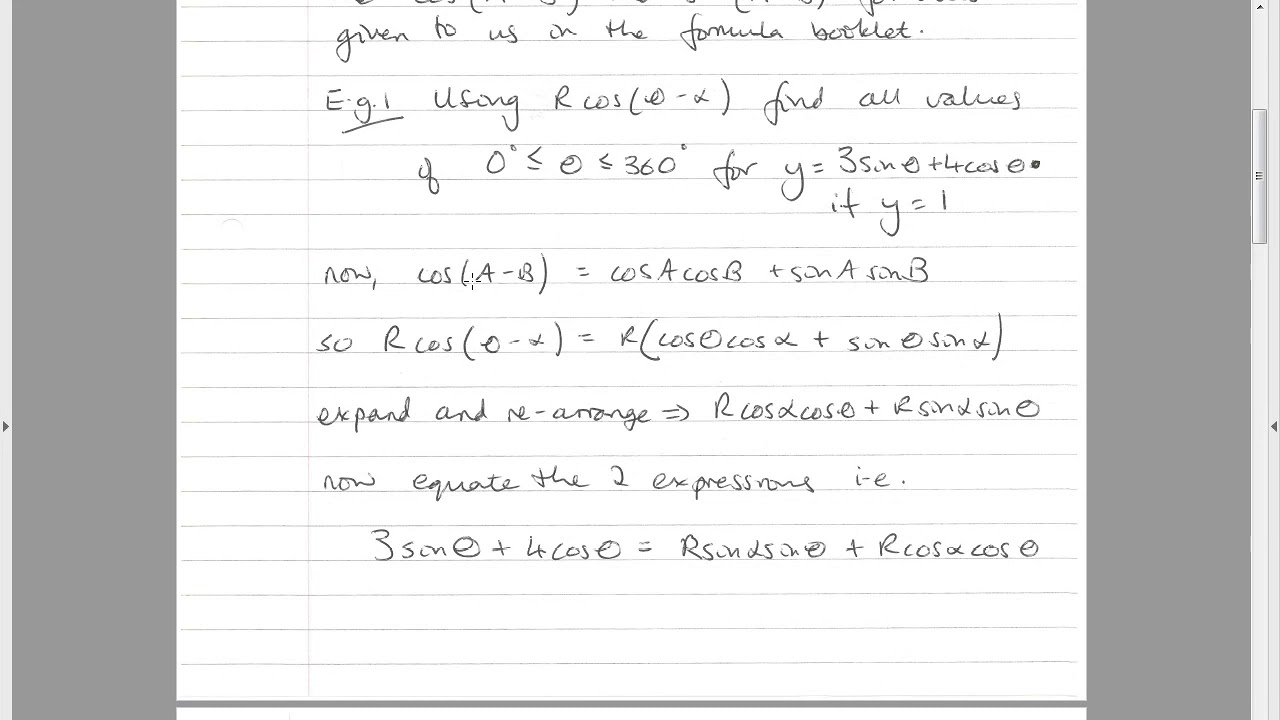 given to us in the formula booklet.
E.g.1 Using R cos(θ-α) find all values
of 0° ≤ θ ≤ 360° for y = 3sinθ+4cosθ.
if y = 1
now, cos(A-B) = cosAcosB + sinAsinB
so Rcos(θ-α) = R(cosθcosα + sinθsinα)
expand and re-arrange ⇒ Rcosαcosθ + Rsinαsinθ
now equate the 2 expressions i-e.
3sinθ + 4cosθ = Rsinαsinθ + Rcosαcosθ